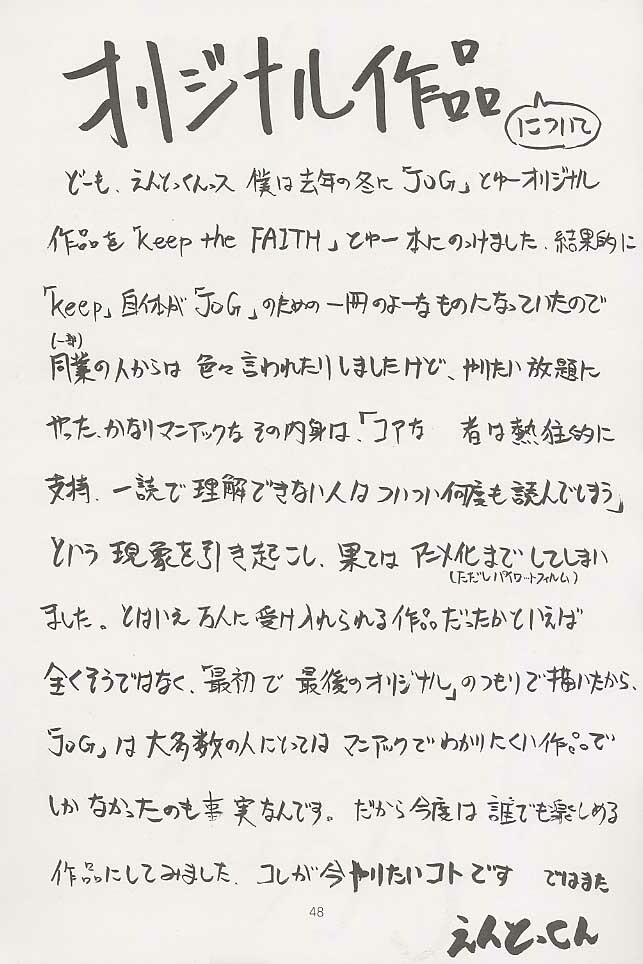 オリジナル作品
について
どーも、えんとっくんっス 僕は去年の冬に「JOG」とゆーオリジナル
作品を「keep the FAITH」とゆー本にのっけました、結果的に
「keep」自体が「JOG」のための一冊のよーなものになっていたので
(一部)
同業の人からは 色々言われたりしましたけど、やりたい放題に
やった、かなりマニアックな その内身は、「コアな 者は熱狂的に
支持、一読で理解できない人は ついつい何度も読んでしまう」
という 現象を引き起こし、果ては アニメ化までしてしまい
(ただしパイロットフィルム)
ました。とはいえ万人に受け入れられる作品だったかといえば
全くそうではなく、「最初で 最後のオリジナル」のつもりで描いたから、
「JOG」は大多数の人にとっては マニアックでわかりにくい作品で
しかなかったのも事実なんです。だから今度は 誰でも楽しめる
作品にしてみました、コレが今やりたいコトです ではまた
48
えんとっくん